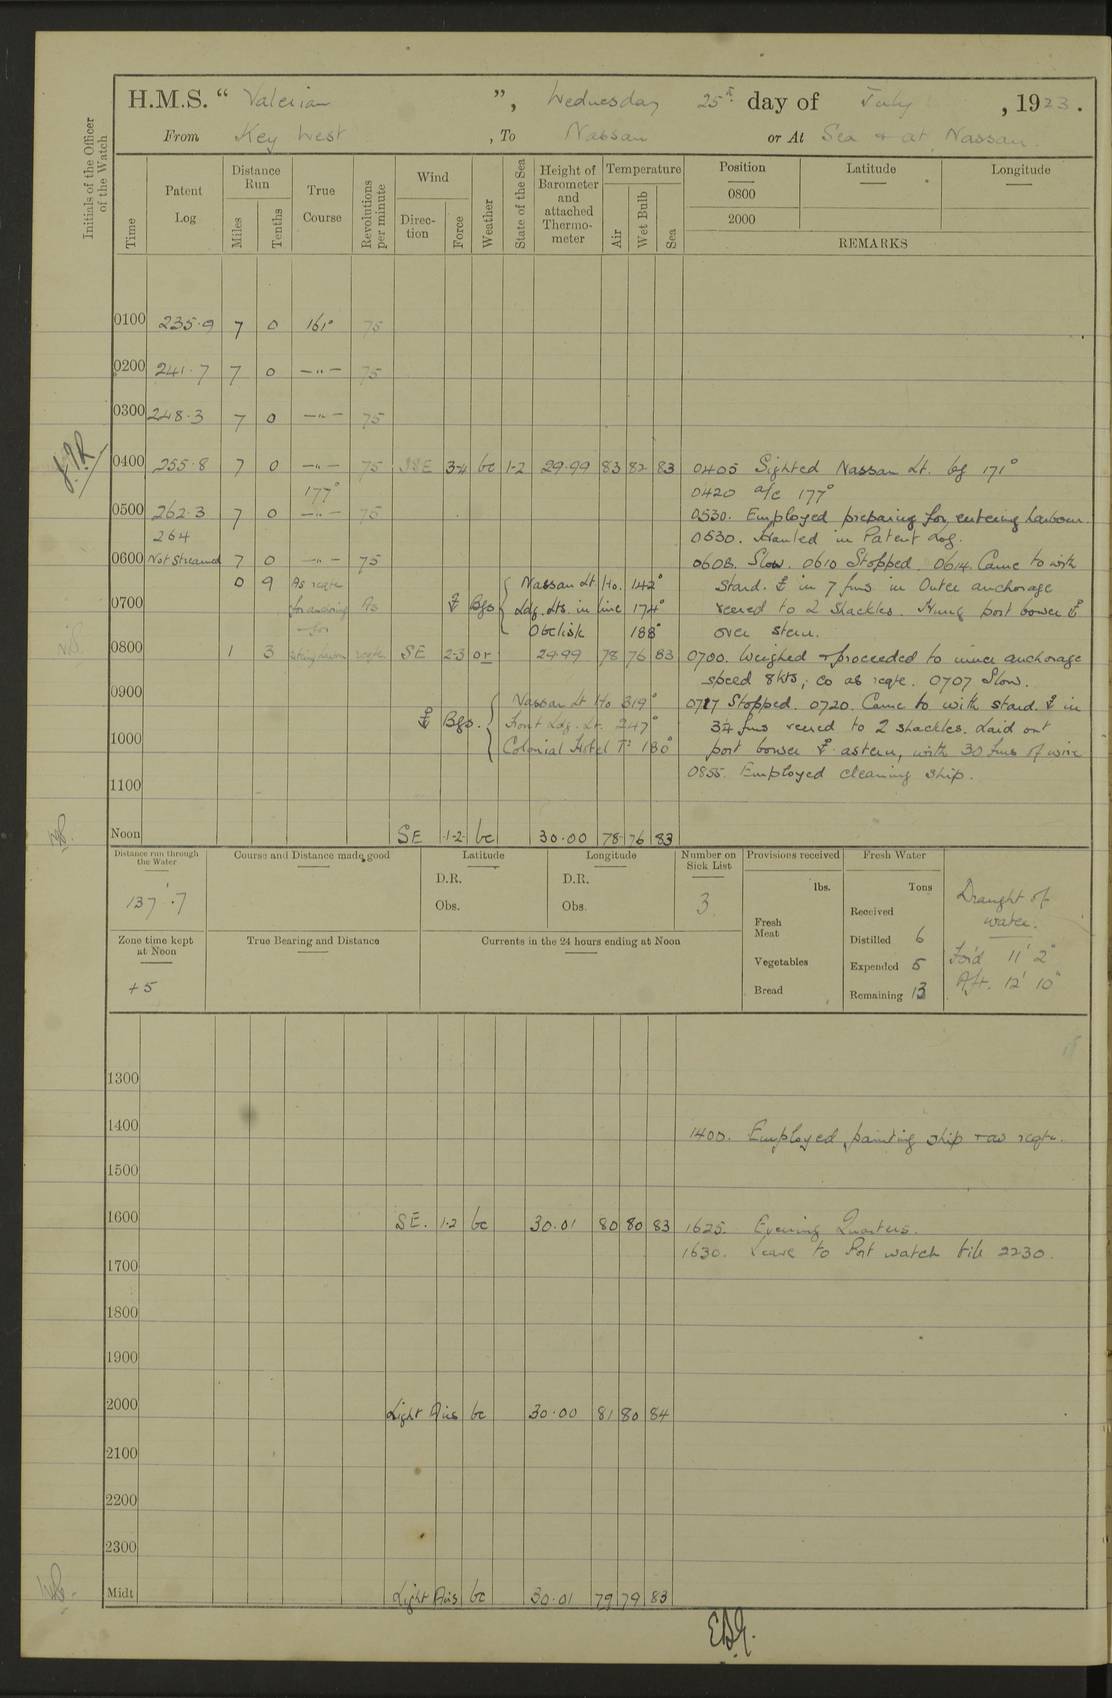 H.M.S. “ Valerian ”, Wednesday 25th day of July, 1923.
From Key West, To Nassau or At Sea & at Nassau.
Initials of the Officer of the Watch
Time
Patent Log
Distance Run
Miles
Tenths
True Course
Revolutions per minute
Wind
Direction
Force
Weather
State of the Sea
Height of Barometer and attached Thermometer
Temperature
Air
Wet Bulb
Sea
Position Latitude Longitude
0800
2000
REMARKS
0100 235.9 7 0 161° 75
0200 241.7 7 0 —"— 75
0300 248.3 7 0 —"— 75
0400 255.8 7 0 —"— 75 SSE 3-4 bc 1-2 29.99 83 82 83 0405 Sighted Nassau Lt. bg 171°
177° 0420 a/c 177°
0500 262.3 7 0 —"— 75 0530. Employed preparing for entering harbour.
264 0530. Hauled in Patent Log.
0600 Not Streamed 7 0 —"— 75 0608. Slow. 0610 Stopped. 0614. Came to with
0 9 As reqte Nassau Lt Ho. 142° stard. ⚓ in 7 fms in Outer anchorage
0700 for As ⚓ Bgs Ldg. Lts. in line 174° veered to 2 shackles. Hung port bower ⚓
Obelisk 188° over stern.
0800 1 3 reqte SE 2-3 or 29.99 78 76 83 0700. Weighed & proceeded to inner anchorage
speed 8 kts; co as reqte. 0707 Slow.
0900 Nassau Lt Ho 319° 0717 Stopped. 0720. Came to with stard. ⚓ in
⚓ Bgs. Front Ldg. Lt. 247° 3¼ fms veered to 2 shackles. Laid out
1000 Colonial Hotel Tr 180° port bower ⚓ astern, with 30 fms of wire
0855. Employed cleaning ship.
1100
Noon SE 1-2 bc 30.00 78 76 83
Distance run through the Water
137.7
Course and Distance made good
Latitude
D.R.
Obs.
Longitude
D.R.
Obs.
Number on Sick List
3
Provisions received
lbs.
Fresh Meat
Vegetables
Bread
Fresh Water
Tons
Received
Distilled 6
Expended 5
Remaining 13
Draught of water.
For'd 11' 2"
Aft. 12' 10"
Zone time kept at Noon
+5
True Bearing and Distance
Currents in the 24 hours ending at Noon
1300
1400 1400. Employed painting ship & as reqte.
1500
1600 SE. 1-2 bc 30.01 80 80 83 1625. Evening Quarters.
1630. Leave to Port watch till 2230.
1700
1800
1900
2000 Light Airs bc 30.00 81 80 84
2100
2200
2300
Midt Light Airs bc 30.01 79 79 83